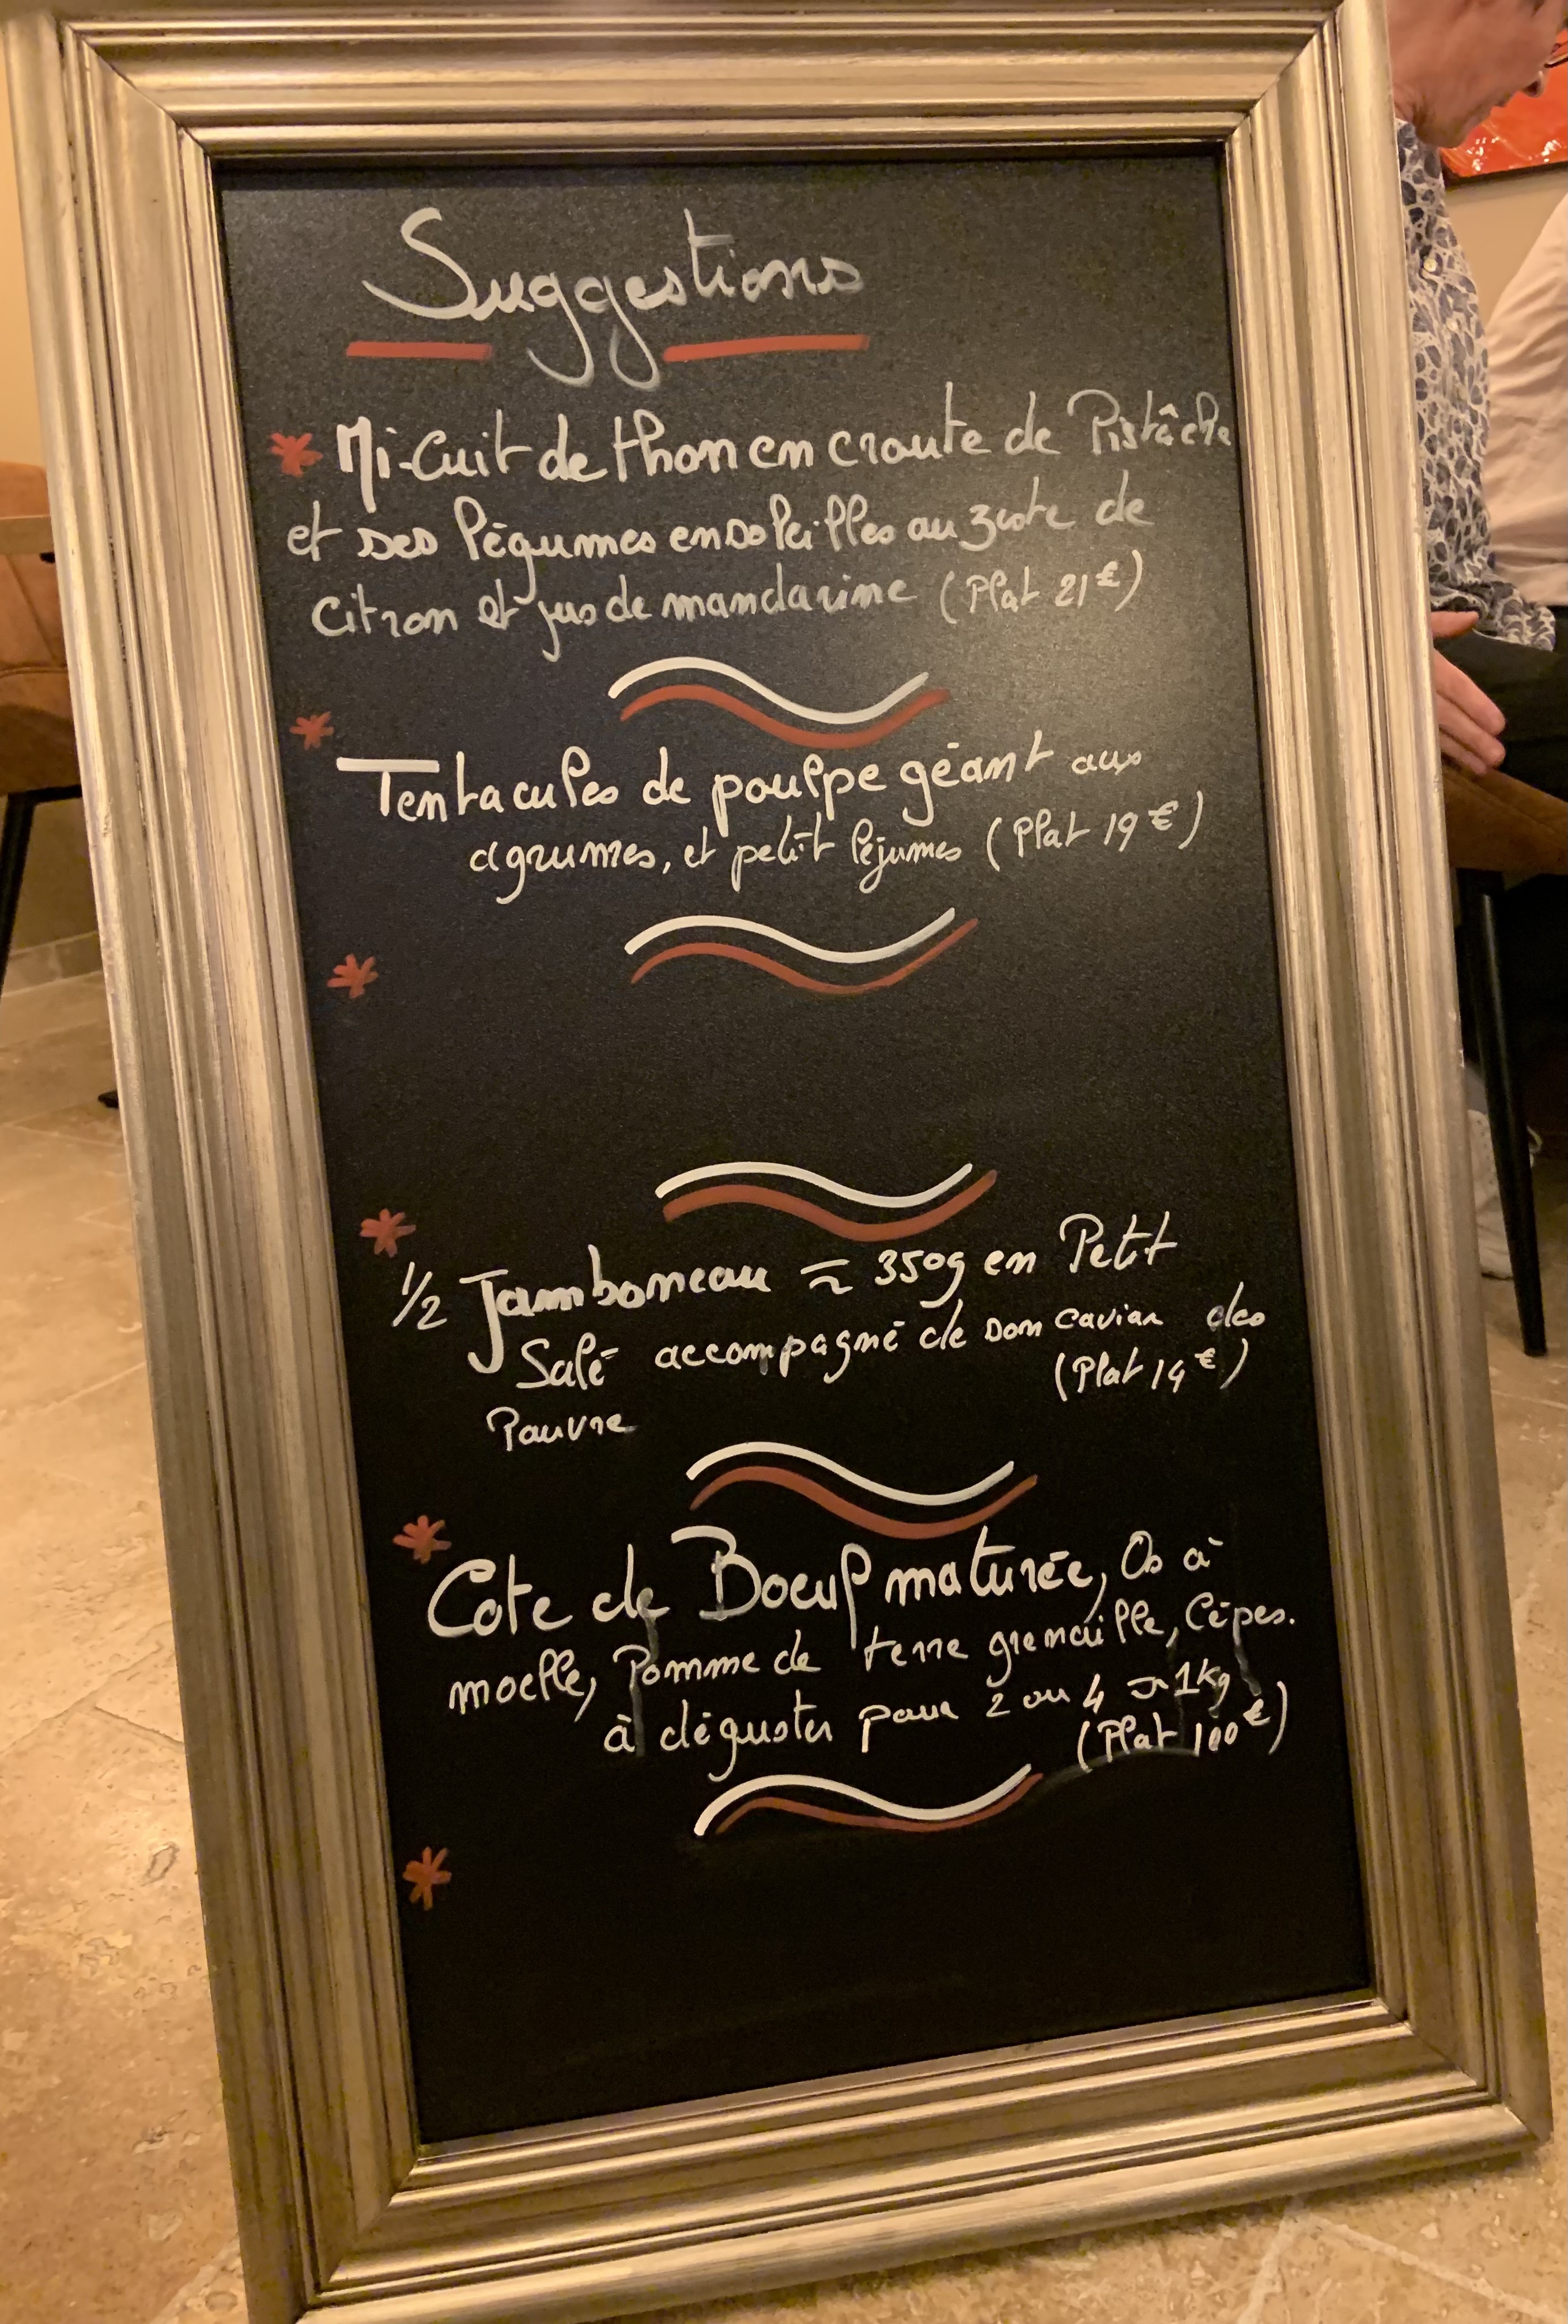 Suggestions
* Mi-Cuit de thon en croute de Pistâche
et ses légumes ensoleilles au zeste de
Citron et jus de mandarine (Plat 21€)
*
Tentacules de poulpe géant aux
agrumes, et petit léjumes (Plat 19€)
*
*
1/2 Jambonneau ≈ 350g en Petit
Salé accompagné de son caviar des
Pauvre (Plat 14€)
*
Cote de Boeuf maturée, Os à
moelle, Pomme de terre grenaille, Cèpes.
à déguster pour 2 ou 4 ~ 1kg
(Plat 100€)
*